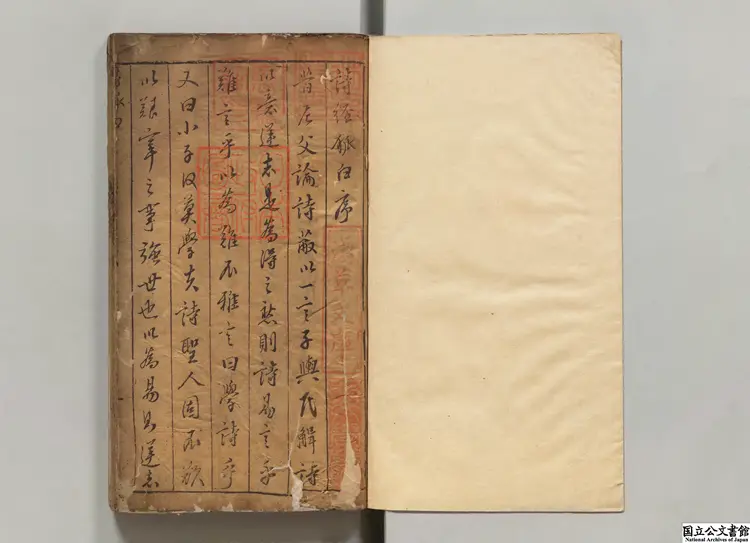 詩經白序
昔尼父論詩蔽以一言子輿氏解詩
以意逆志是為得之然則詩易言乎
難言乎以為難不雅言曰學詩乎
又曰小子何莫學夫詩聖人固不欲
以艱辛之事強世也以為易則逆志
淺草文庫
国立公文書館
National Archives of Japan